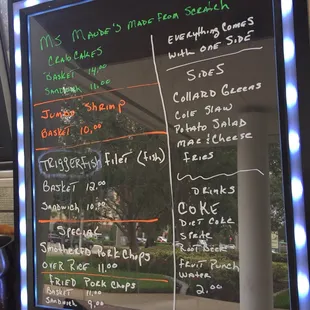 Ms Maude's Made From Scratch
Crab Cakes
Basket 14.00
Sandwich 11.00
Jumbo Shrimp
Basket 10.00
Triggerfish filet (fish)
Basket 12.00
Sandwich 10.00
Special
Smothered Pork Chops
Over Rice 11.00
Fried Pork Chops
Basket 11.00
Sandwich 9.00
Everything Comes
with one side
Sides
Collard Greens
Cole Slaw
Potato Salad
Mac & Cheese
Fries
Drinks
Coke
Diet Coke
Sprite
Root Beer
Fruit Punch
Water
2.00